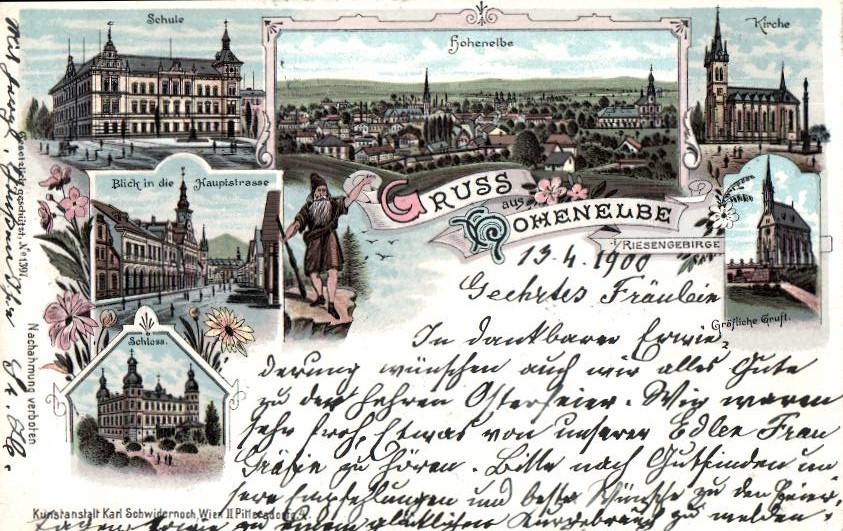 Schule
Hohenelbe
Kirche
Blick in die Hauptstrasse
GRUSS
aus
HOHENELBE
i/RIESENGEBIRGE
Gräfliche Gruft.
Schloss.
13.4.1900
Geehrtes Fräulein
In dankbarer Erwie-
derung wünschen auch wir alles Gute
zu der hehren Osterfeier. Wir waren
sehr froh, Etwas von unserer Edlen Frau
Gräfin zu hören. Bitte nach Gutfinden un
sere Empfehlungen und beste Wünsche zu den Feier-
tagen, sowie zu einem glücklichen zu melden.
Mit
Gesetzlich geschützt. No 1391.
Nachahmung verboten
Kunstanstalt Karl Schwidernoch, Wien II.